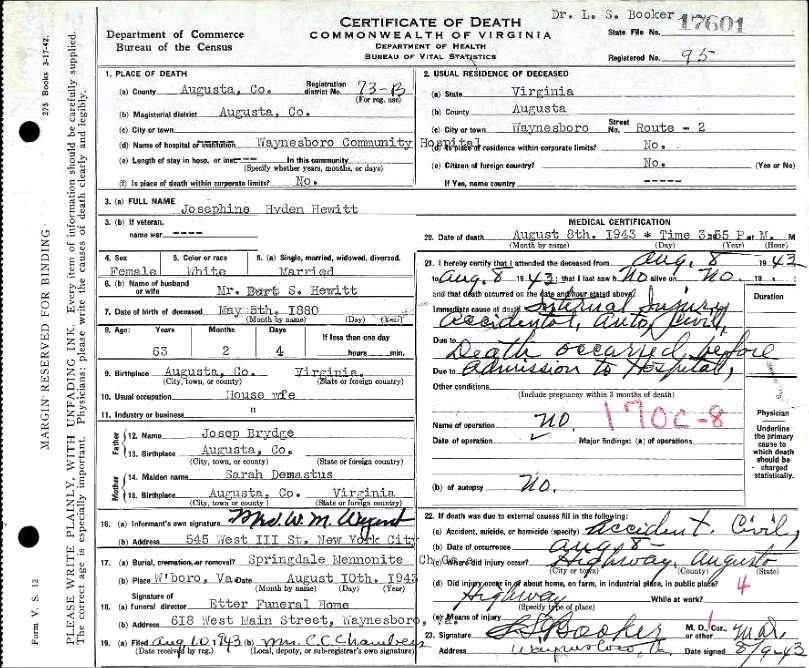 Dr. L. S. Booker
17601
CERTIFICATE OF DEATH
COMMONWEALTH OF VIRGINIA
DEPARTMENT OF HEALTH
BUREAU OF VITAL STATISTICS
Department of Commerce
Bureau of the Census
State File No.
Registered No. 95
275 Books 3-17-42.
MARGIN RESERVED FOR BINDING
PLEASE WRITE PLAINLY, WITH UNFADING INK. Every item of information should be carefully supplied.
The correct age is especially important. Physicians: please write the causes of death clearly and legibly.
Form V. S. 12
1. PLACE OF DEATH
(a) County Augusta, Co. Registration district No. 73-B
(For reg. use)
(b) Magisterial district Augusta, Co.
(c) City or town
(d) Name of hospital or institution Waynesboro Community Hospital
(e) Length of stay in hosp. or inst. --- In this community
(Specify whether years, months, or days)
(f) Is place of death within corporate limits? No.
2. USUAL RESIDENCE OF DECEASED
(a) State Virginia
(b) County Augusta
(c) City or town Waynesboro Street No. Route - 2
(d) Is place of residence within corporate limits? No.
(e) Citizen of foreign country? No. (Yes or No)
If Yes, name country -----
3. (a) FULL NAME Josephine Hyden Hewitt
3. (b) If veteran, name war ----
4. Sex Female
5. Color or race White
6. (a) Single, married, widowed, divorced. Married
6. (b) Name of husband or wife Mr. Bert S. Hewitt
7. Date of birth of deceased May 5th. 1880
(Month by name) (Day) (Year)
8. Age: Years Months Days If less than one day
63 2 4 hours min.
9. Birthplace Augusta, Co. Virginia.
(City, town, or county) (State or foreign country)
10. Usual occupation House wfe
11. Industry or business "
Father
12. Name Josep Brydge
13. Birthplace Augusta, Co.
(City, town, or county) (State or foreign country)
Mother
14. Maiden name Sarah Demastus
15. Birthplace Augusta, Co. Virginia
(City, town or county) (State or foreign country)
16. (a) Informant's own signature Mrs. W. M.
(b) Address 545 West III St. New York City
17. (a) Burial, cremation, or removal? Springdale Mennonite
(b) Place W'boro, Va. Date August 10th. 1943
(Month by name) (Day) (Year)
18. Signature of (a) funeral director Etter Funeral Home
(b) Address 618 West Main Street, Waynesboro, Va.
19. (a) Filed Aug 10, 1943 (b) Mrs. C. C. Chambers
(Date received by reg.) (Local, deputy, or sub-registrar's own signature)
MEDICAL CERTIFICATION
20. Date of death August 8th. 1943 * Time 3:55 P. M. M
(Month by name) (Day) (Year) (Hour)
21. I hereby certify that I attended the deceased from Aug. 8 1943
to Aug. 8 1943; that I last saw h No alive on No. 19
and that death occurred on the date and hour stated above.
Duration
Immediate cause of death Internal Injury
Accidental, Auto, Civil,
Due to Death occurred before
Due to Admission to Hospital,
Other conditions
(Include pregnancy within 3 months of death)
Name of operation NO.
170C-8
Date of operation Major findings: (a) of operations
(b) of autopsy No.
Physician
Underline the primary cause to which death should be charged statistically.
22. If death was due to external causes fill in the following:
(a) Accident, suicide, or homicide (specify) Accident. Civil,
(b) Date of occurrence Aug 8-
(c) Where did injury occur? Highway, Augusta
(City or town) (County) (State)
(d) Did injury occur in or about home, on farm, in industrial place, in public place? 4
Highway While at work?
(Specify type of place)
(e) Means of injury
23. Signature L S Booker M. D., Cor., or other
Address Waynesboro, Va. Date signed 8/9-43